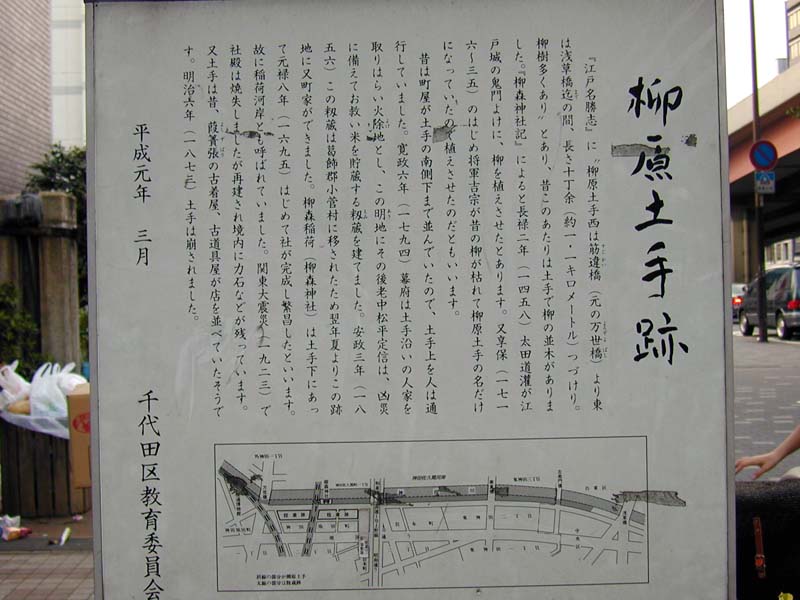 柳原土手跡
『江戸名勝志』に〝柳原土手西は筋違橋（元の万世橋）より東
は浅草橋迄の間、長さ十丁余（約一・一キロメートル）つづけり。
柳樹多くあり〟とあり、昔このあたりは土手で柳の並木がありま
した。『柳森神社記』によると長禄二年（一四五八）太田道灌が江
戸城の鬼門よけに、柳を植えさせたとあります。又享保（一七一
六〜三五）のはじめ将軍吉宗が昔の柳が枯れて柳原土手の名だけ
になっていたので植えさせたのだともいいます。
昔は町屋が土手の南側下まで並んでいたので、土手上を人は通
行していました。寛政六年（一七九四）幕府は土手沿いの人家を
取りはらい火除地とし、この明地にその後老中松平定信は、凶災
に備えてお救い米を貯蔵する籾蔵を建てました。安政三年（一八
五六）この籾蔵は葛飾郡小菅村に移されたため翌年夏よりこの跡
地に又町家ができました。柳森稲荷（柳森神社）は土手下にあっ
て元禄八年（一六九五）はじめて社が完成し繁昌したといいます。
故に稲荷河岸とも呼ばれていました。関東大震災（一九二三）で
社殿は焼失しましたが再建され境内に力石などが残っています。
又土手は昔、葭簀張の古着屋、古道具屋が店を並べていたそうで
す。明治六年（一八七三）土手は崩されました。
平成元年　三月
千代田区教育委員会
外神田一丁目